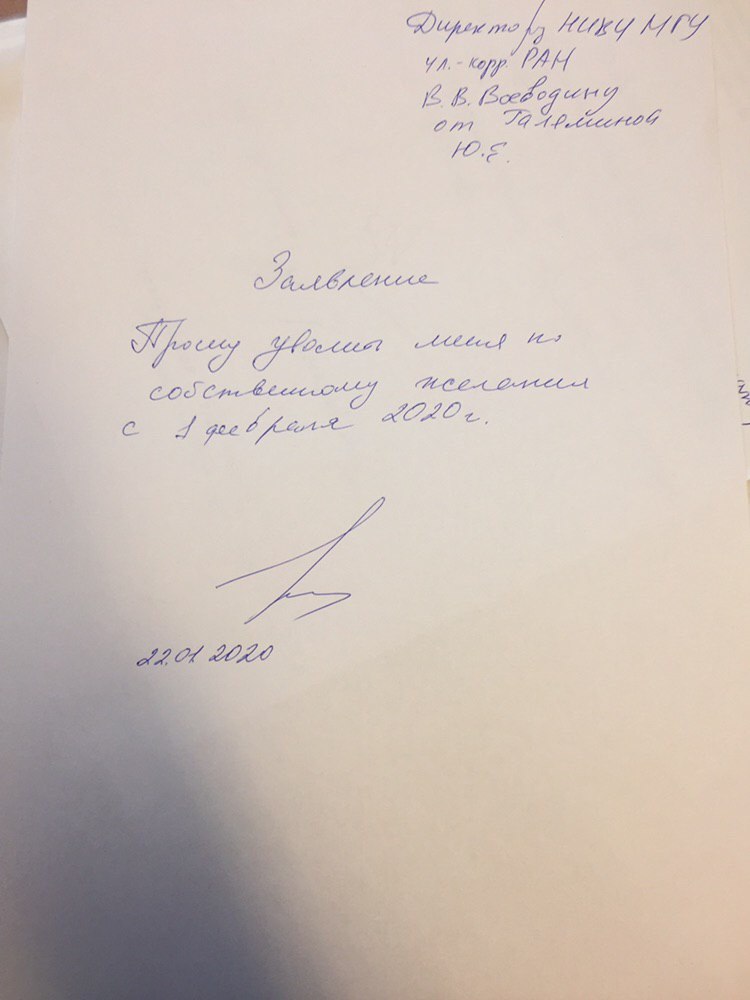 Директору НИВЦ МГУ
чл.-корр. РАН
В.В. Воеводину
от Галяминой
Ю.Е.
Заявление
Прошу уволить меня по
собственному желанию
с 1 февраля 2020 г.
22.01.2020